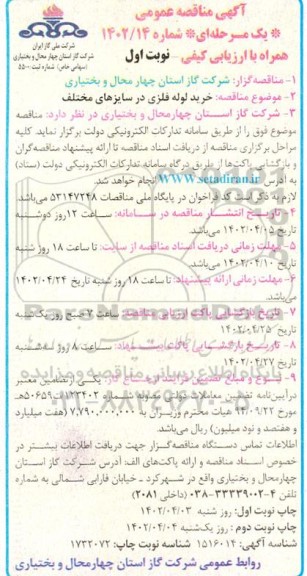 آگهی مناقصه عمومی
※ یک مرحله‌ای※ شماره ۱۴۰۲/۱۴
همراه با ارزیابی کیفی – نوبت اول
شرکت ملی گاز ایران
شرکت گاز استان چهار محال و بختیاری
(سهامی خاص) شماره ثبت ۵۵۰۰
۱- مناقصه‌گزار: شرکت گاز استان چهار محال و بختیاری
۲- موضوع مناقصه: خرید لوله فلزی در سایزهای مختلف
۳- شرکت گاز استان چهارمحال و بختیاری در نظر دارد: مناقصه
موضوع فوق را از طریق سامانه تدارکات الکترونیکی دولت برگزار نماید. کلیه
مراحل برگزاری مناقصه از دریافت اسناد مناقصه تا ارائه پیشنهاد مناقصه‌گران
و بازگشایی پاکت‌ها از طریق درگاه سامانه تدارکات الکترونیکی دولت (ستاد)
به آدرس www.setadiran.ir انجام خواهد شد.
لازم به ذکر است کد فراخوان در پایگاه ملی مناقصات ۵۳۱۴۷۲۴۸ می‌باشد.
۴- تاریخ انتشار مناقصه در سامانه: ساعت ۱۲ روز دوشنبه
تاریخ ۱۴۰۲/۰۴/۰۵ می‌باشد.
۵- مهلت زمانی دریافت اسناد مناقصه از سایت: تا ساعت ۱۸ روز شنبه
تاریخ ۱۴۰۲/۰۴/۱۰ می‌باشد.
۶- مهلت زمانی ارائه پیشنهاد: تا ساعت ۱۸ روز شنبه تاریخ ۱۴۰۲/۰۴/۲۴
می‌باشد.
۷- تاریخ بازگشایی پاکت ارزیابی مناقصه: ساعت ۷ صبح روز یکشنبه
تاریخ ۱۴۰۲/۰۴/۲۵
۸- تاریخ بازگشایی پاکات ساعت ۸ روز سه‌شنبه
تاریخ ۱۴۰۲/۰۴/۲۷
۹- نوع و مبلغ تضمین فرآیند ارجاع کار: یکی از تضامین معتبر
درآیین‌نامه تضمین معاملات دولتی مصوبه شماره ۱۲۳۴۰۲/ت۵۰۶۵۹هـ
مورخ ۹۴/۰۹/۲۲ هیات محترم وزیران به ۷,۷۹۰,۰۰۰,۰۰۰ (هفت میلیارد
و هفتصد و نود میلیون) ریال می‌باشد.
اطلاعات تماس دستگاه مناقصه‌گزار جهت دریافت اطلاعات بیشتر در
خصوص اسناد مناقصه و ارائه پاکت‌های الف: آدرس شرکت گاز استان
چهارمحال و بختیاری واقع در شهرکرد ـ خیابان فارابی شمالی به شماره
تلفن ۴-۳۳۳۳۹۰۰۲-۰۳۸ (داخلی ۲۰۸۱)
چاپ نوبت اول: روز شنبه ۱۴۰۲/۰۴/۰۳
چاپ نوبت دوم : روز یک‌شنبه ۱۴۰۲/۰۴/۰۴
شناسه آگهی: ۱۵۱۶۰۱۴ شناسه نوبت چاپ: ۱۷۳۲۰۷۲
روابط عمومی شرکت گاز استان چهارمحال و بختیاری